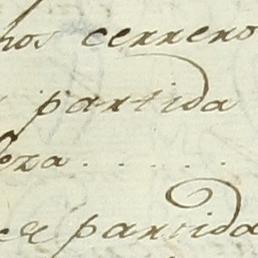 hos cerrero
partida
era . . . . .
partida